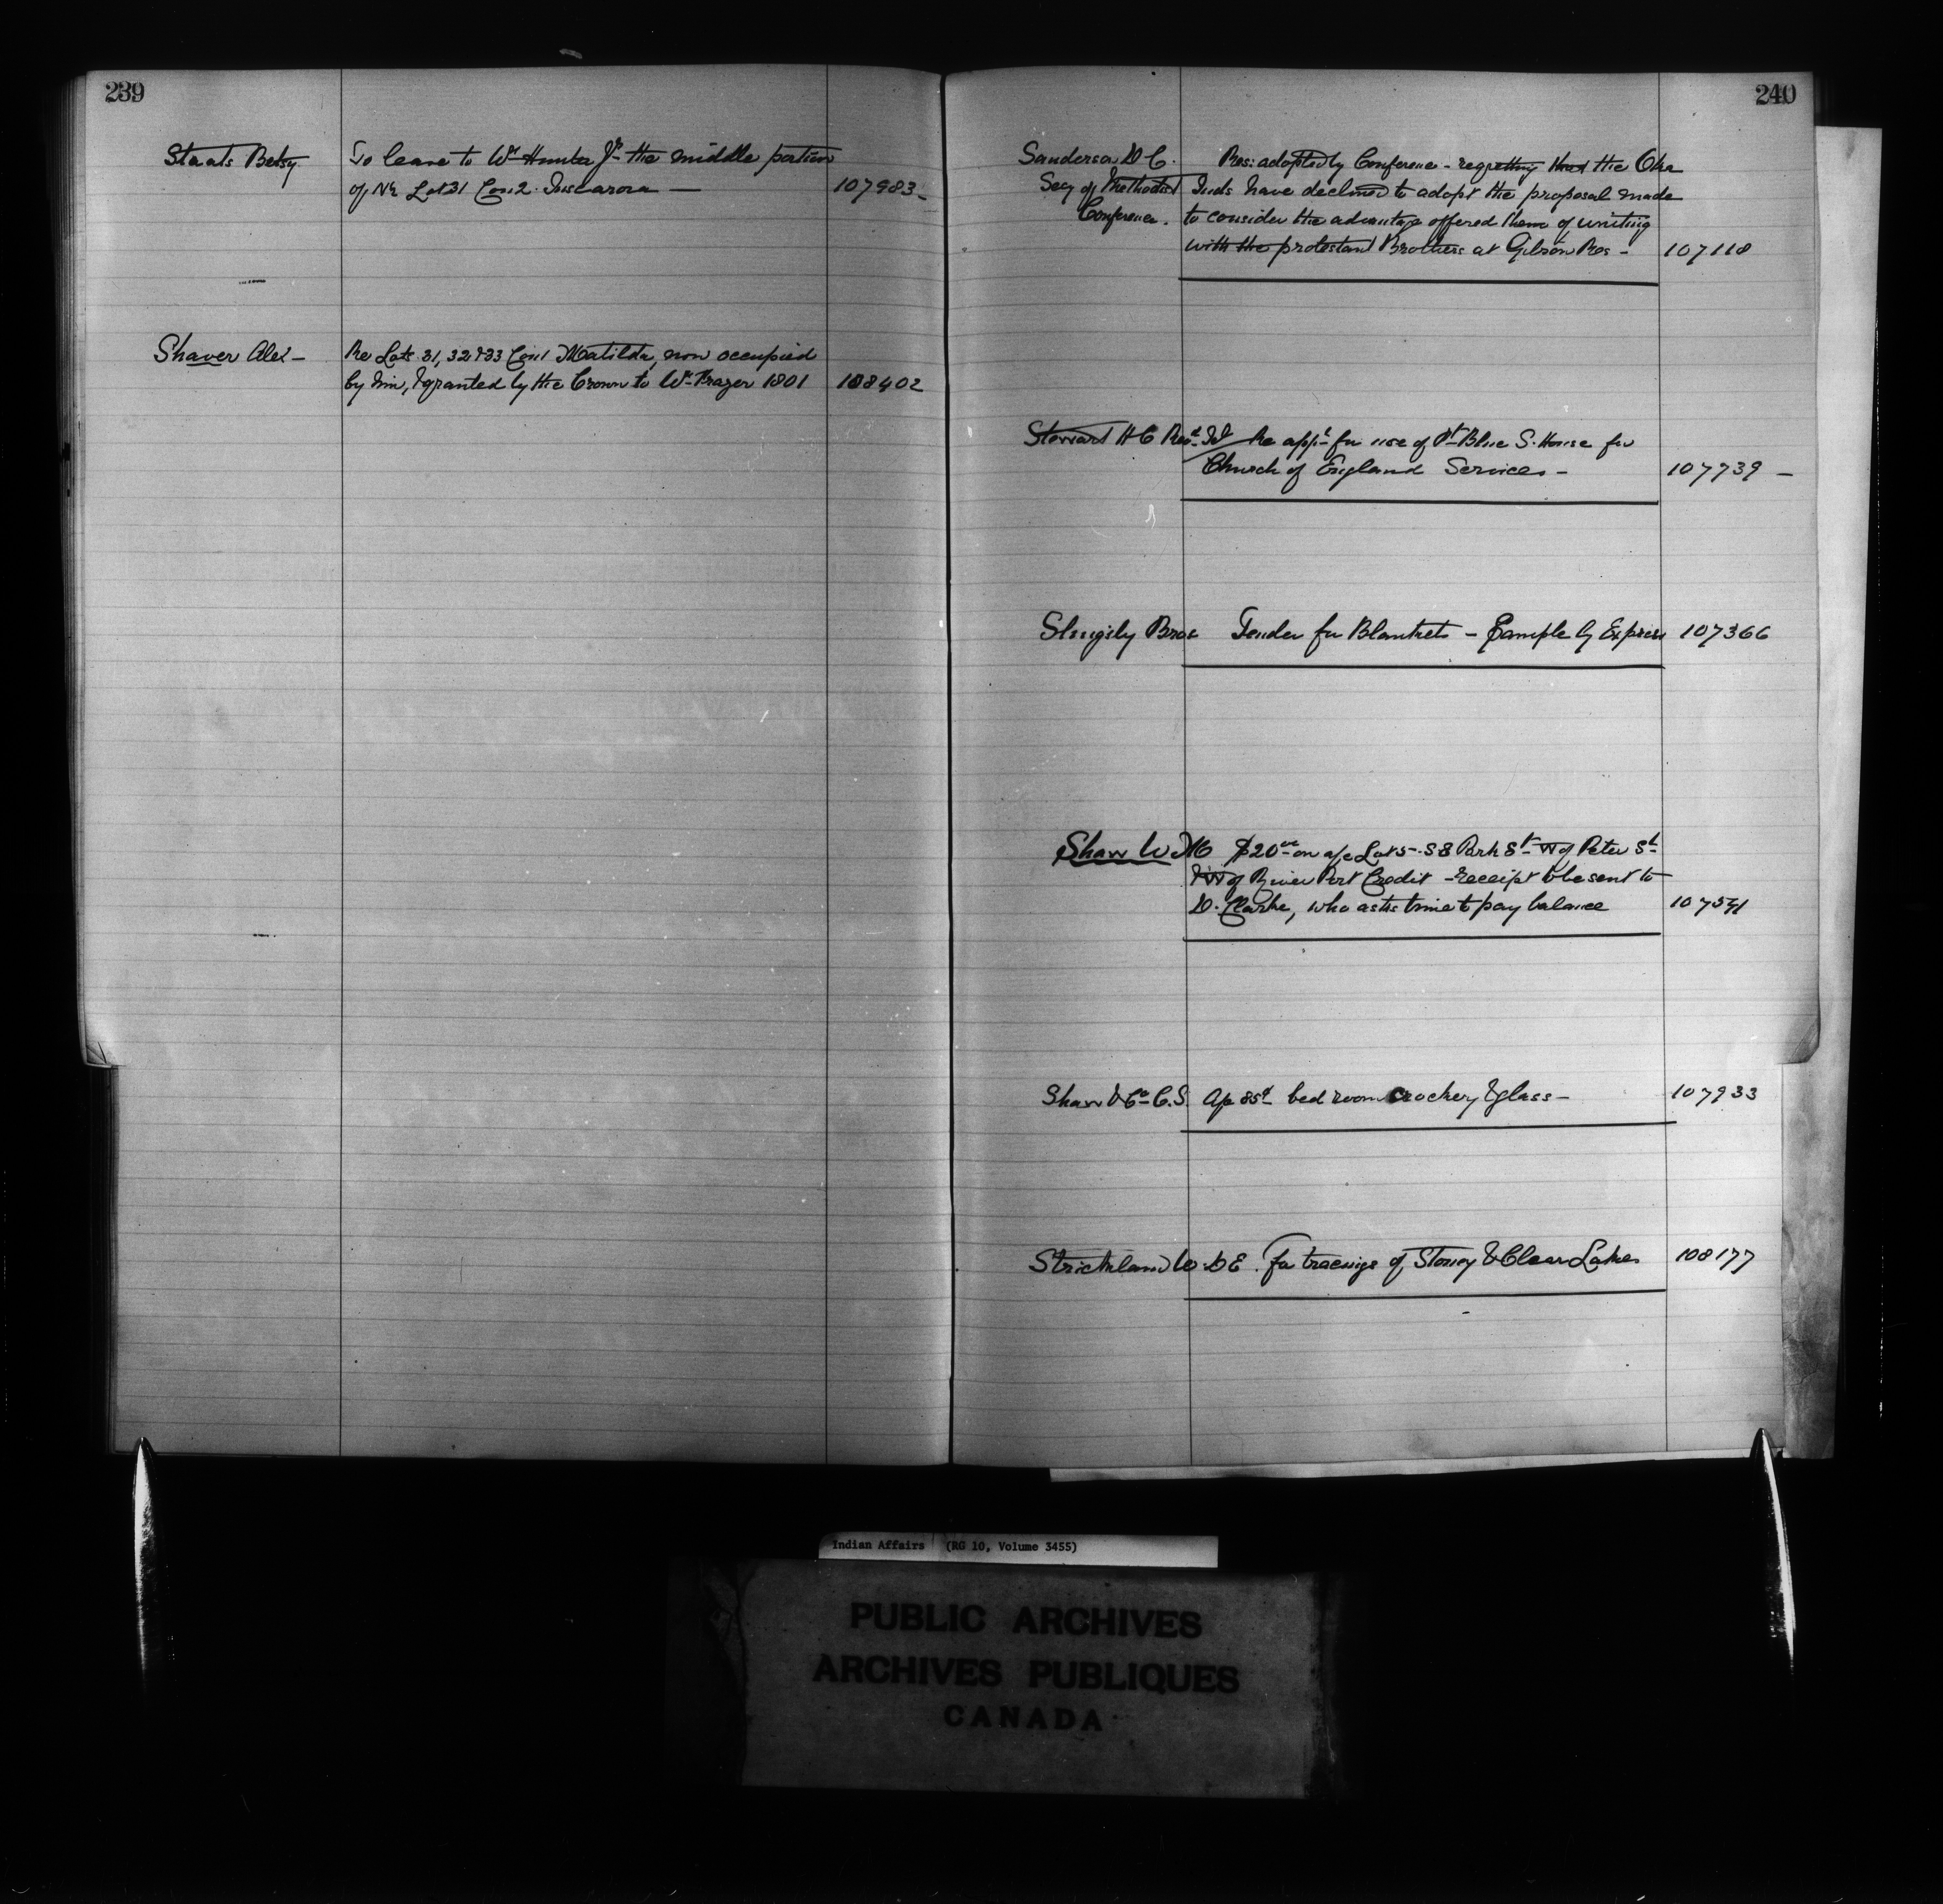 239
Staats Betsy
To lease to Wm Hunter Jr the middle portion
of N½ Lot 31 Con 2. Tuscarora —
107983
Shaver Alex —
Re Lots 31, 32 & 33 Con 1 Matilda, now occupied
by him, & granted by the Crown to Wm Frazer 1801
108402
240
Sanderson D C.
Secy of Methodist
Conference.
Res: adopted by Conference - regretting that the Oka
Inds have declined to adopt the proposal made
to consider the advantage offered them of uniting
with the protestant Brothers at Gibson Res -
107118
Stewart H C Revd
Re appn for use of Pt Blue S. House for
Church of England Services -
107739 —
Slingsby Bros
Tender for Blankets - Sample by Express
107366
Shaw W M
$20 00 on a/c Lot 5 - S S Park St W of Peter St
& W of River Port Credit - receipt to be sent to
D. Clarke, who asks time to pay balance
107541
Shaw & Co C.S.
bed room crockery & glass -
107933
Strickland W. D E.
For tracings of Stoney & Clear Lakes
108177
Indian Affairs (RG 10, Volume 3455)
PUBLIC ARCHIVES
ARCHIVES PUBLIQUES
CANADA